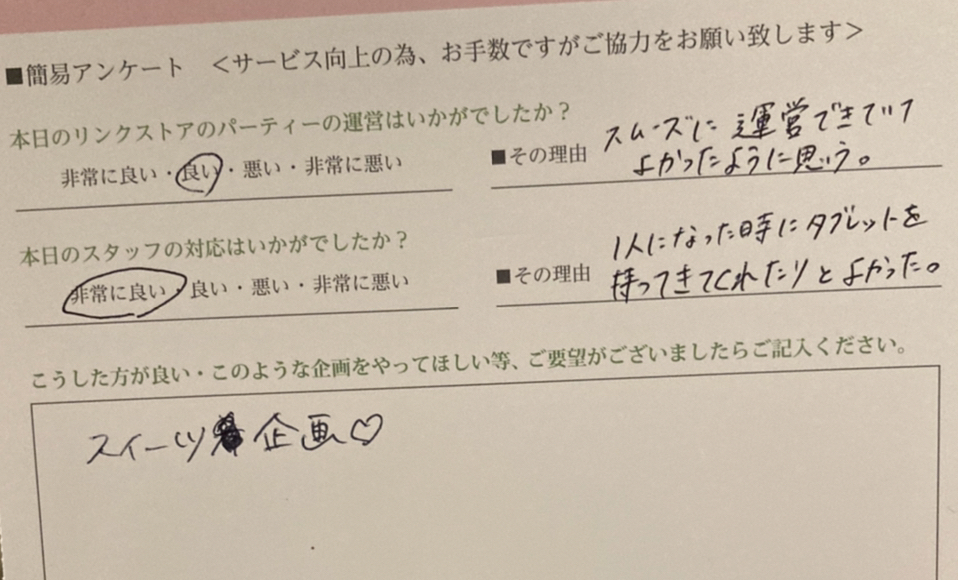 ■簡易アンケート <サービス向上の為、お手数ですがご協力をお願い致します>
本日のリンクストアのパーティーの運営はいかがでしたか？
非常に良い・良い・悪い・非常に悪い
■その理由
スムーズに運営できていて
よかったように思う。
本日のスタッフの対応はいかがでしたか？
非常に良い・良い・悪い・非常に悪い
■その理由
1人になった時にタブレットを
持ってきてくれたりとよかった。
こうした方が良い・このような企画をやってほしい等、ご要望がございましたらご記入ください。
スイーツ企画♡